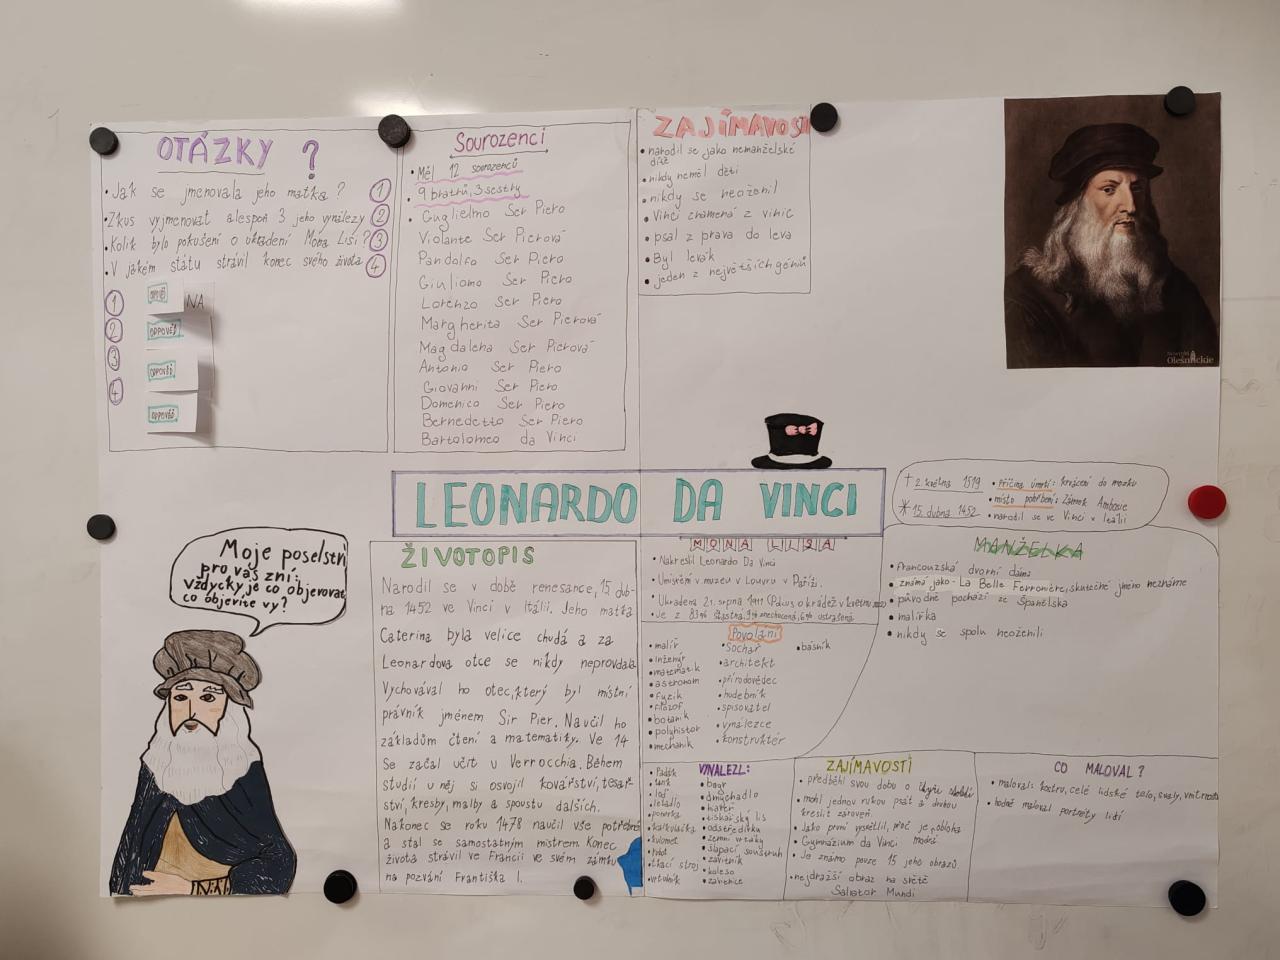 OTÁZKY ?
• Jak se jmenovala jeho matka? 1
• Zkus vyjmenovat alespoň 3 jeho vynálezy 2
• Kolik bylo pokušení o ukradení Mona Lisi? 3
• V jakém státu strávil konec svého života 4
1
NA
2 ODPOVĚĎ
3 ODPOVĚĎ
4 ODPOVĚĎ
Sourozenci
• Měl 12 sourozenců
• 9 bratrů, 3 sestry
Guglielmo Ser Piero
Violante Ser Pierová
Pandolfo Ser Piero
Giuliomo Ser Piero
Lorenzo Ser Piero
Margherita Ser Pierová
Magdalena Ser Pierová
Antonio Ser Piero
Giovanni Ser Piero
Domenico Ser Piero
Bernedetto Ser Piero
Bartolomeo da Vinci
ZAJÍMAVOSTI
• narodil se jako nemanželské
dítě
• nikdy neměl děti
• nikdy se neoženil
• Vinci znamená z vinic
• psal z prava do leva
• Byl levák
• jeden z největších géniů
Olešnickie
LEONARDO DA VINCI
† 2. května 1519
* 15. dubna 1452
• příčina úmrtí: krvácení do mozku
• místo pohřbení: Zámek Amboise
• narodil se ve Vinci v Itálii
Moje poselství
pro vás zní:
vždycky je co objevovat
co objevíte vy?
ŽIVOTOPIS
Narodil se v době renesance, 15, dub-
na 1452 ve Vinci v Itálii. Jeho matka
Caterina byla velice chudá a za
Leonardova otce se nikdy neprovdala
Vychovával ho otec, který byl místní
právník jménem Sir Pier. Naučil ho
základům čtení a matematiky. Ve 14
se začal učit u Verrocchia. Během
studií u něj si osvojil kovářství, tesař-
ství, kresby, malby a spoustu dalších.
Nakonec se roku 1478 naučil vše potřebné
a stal se samostatným mistrem. Konec
života strávil ve Francii ve svém zámku
na pozvání Františka I.
MONA LISA
• Nakreslil Leonardo Da Vinci
• Umístění v muzeu v Louvru v Paříži.
• Ukradena 21. srpna 1911
• Je z 83% šťastná, 9% znechucená, 6% ustrašená
Povolání
• malíř
• inženýr
• matematik
• astronom
• fyzik
• filozof
• botanik
• polyhistor
• mechanik
• Sochař
• architekt
• přírodovědec
• hudebník
• spisovatel
• vynálezce
• konstruktér
• básník
MANŽELKA
• francouzská dvorní dáma
• známá jako - La Belle Ferronière, skutečné jméno neznáme
• původně pochází ze Španělska
• malířka
• nikdy se spolu neoženili
VYNALEZL:
• Padák
• tank
• loď
• letadlo
• ponorka
• kalkulačka
• kulomet
• robot
• tkací stroj
• vrtulník
• bagr
• dmychadlo
• tiskařský lis
• odstředivku
• šlapací soustruh
• závitník
• koleso
ZAJÍMAVOSTI
• předběhl svou dobu o
• mohl jednou rukou psát a druhou
kreslit zároveň.
• Jako první vysvětlil, proč je obloha
modrá
• Gymnázium da Vinci
• Je známo pouze 15 jeho obrazů.
• nejdražší obraz na světě
Salvator Mundi
CO MALOVAL?
• maloval: kostru, celé lidské tělo, svaly, vnitřnosti
• hodně maloval portréty lidí